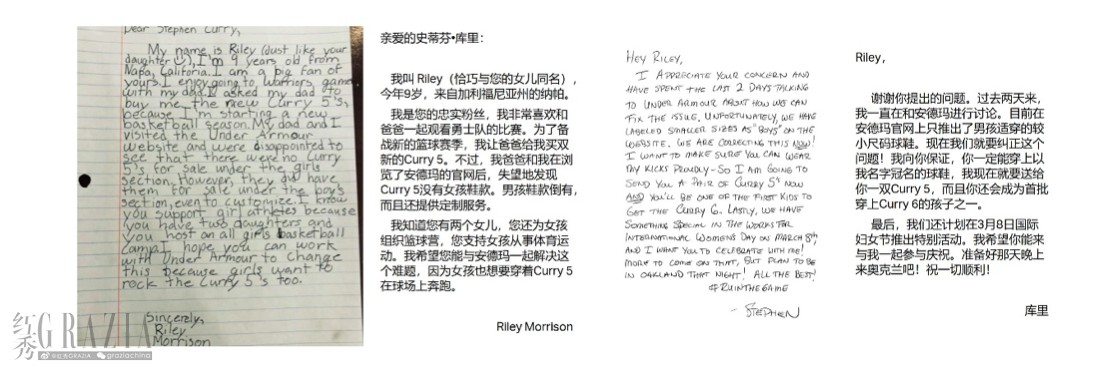 Dear Stephen Curry,
My name is Riley (just like your
daughter), I'm 9 years old from
Napa, California. I am a big fan of
yours. I enjoy going to Warriors games
with my dad. I asked my dad to
buy me the new Curry 5's,
because I'm starting a new
basketball season. My dad and I
visited the Under Armour
website and were disappointed to
see that there were no Curry
5's for sale under the girls
section. However, they did have
them for sale under the boy's
section, even to customize. I know
you support girl athletes because
you have two daughters and
you host an all girls basketball
camp. I hope you can work
with Under Armour to change
this because girls want to
rock the Curry 5's too.
Sincerely,
Riley
Morrison
亲爱的史蒂芬•库里：
我叫 Riley（恰巧与您的女儿同名），
今年9岁，来自加利福尼亚州的纳帕。
我是您的忠实粉丝，我非常喜欢和
爸爸一起观看勇士队的比赛。为了备
战新的篮球赛季，我让爸爸给我买双
新的Curry 5。不过，我爸爸和我在浏
览了安德玛的官网后，失望地发现
Curry 5没有女孩鞋款。男孩鞋款倒有，
而且还提供定制服务。
我知道您有两个女儿，您还为女孩
组织篮球营，您支持女孩从事体育运
动。我希望您能与安德玛一起解决这
个难题，因为女孩也想要穿着Curry 5
在球场上奔跑。
Riley Morrison
HEY RILEY,
I APPRECIATE YOUR CONCERN AND
HAVE SPENT THE LAST 2 DAYS TALKING
TO UNDER ARMOUR ABOUT HOW WE CAN
FIX THE ISSUE. UNFORTUNATELY, WE HAVE
LABELED SMALLER SIZES AS "BOYS" ON THE
WEBSITE. WE ARE CORRECTING THIS NOW!
I WANT TO MAKE SURE YOU CAN WEAR
MY KICKS PROUDLY - SO I AM GOING TO
SEND YOU A PAIR OF CURRY 5's NOW
AND YOU'LL BE ONE OF THE FIRST KIDS TO
GET THE CURRY 6. LASTLY, WE HAVE
SOMETHING SPECIAL IN THE WORKS FOR
INTERNATIONAL WOMENS DAY ON MARCH 8th,
AND I WANT YOU TO CELEBRATE WITH ME!
MORE TO COME ON THAT, BUT PLAN TO BE
IN OAKLAND THAT NIGHT! ALL THE BEST!
#RUINTHEGAME
- STEPHEN
Riley，
谢谢你提出的问题。过去两天来，
我一直在和安德玛进行讨论。目前在
安德玛官网上只推出了男孩适穿的较
小尺码球鞋。现在我们就要纠正这个
问题！我向你保证，你一定能穿上以
我名字冠名的球鞋，我现在就要送给
你一双Curry 5，而且你还会成为首批
穿上Curry 6的孩子之一。
最后，我们还计划在3月8日国际
妇女节推出特别活动。我希望你能来
与我一起参与庆祝。准备好那天晚上
来奥克兰吧！祝一切顺利！
库里
红秀GRAZIA
@红秀GRAZIA graziachina